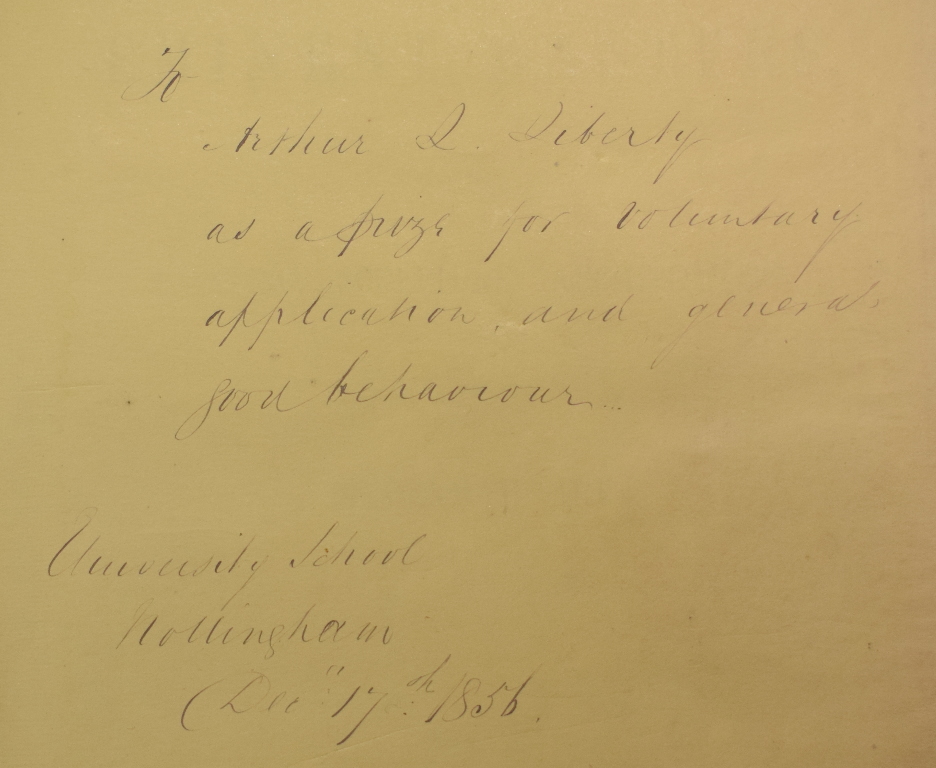 To
Arthur L. Liberty
as a prize for voluntary
application, and general
good behaviour...
University School
Nottingham
(Dec" 17th 1856.